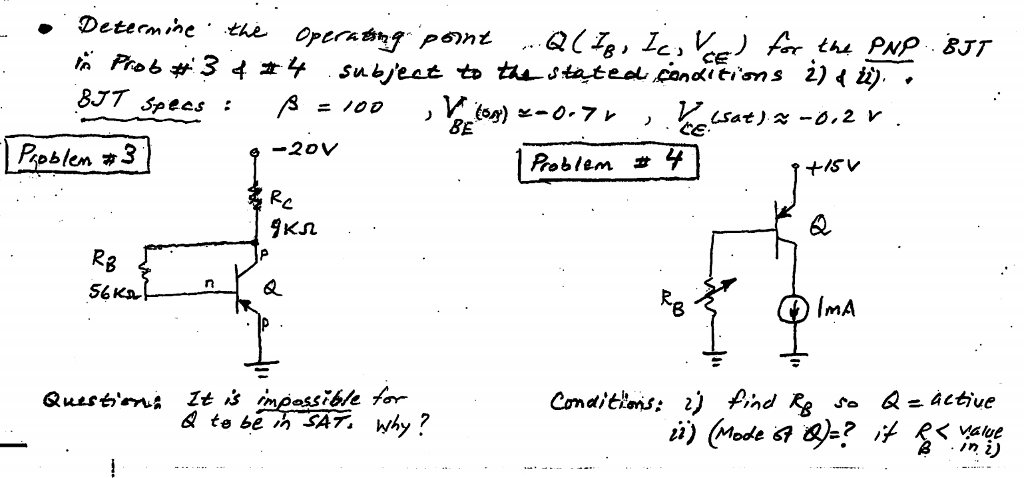 • Determine the operating point Q(IB, IC, VCE) for the PNP BJT
in Prob #3 & #4 subject to the stated conditions i) & ii).
BJT Specs : β = 100 , VBE(on) ≈ -0.7 v , VCE(sat) ≈ -0.2 v .
Problem #3
-20V
RC
9KΩ
RB
56KΩ
p
n
Q
p
Question: It is impossible for
Q to be in SAT. Why?
Problem # 4
+15V
Q
RB
1mA
Conditions: i) find RB so Q = active
ii) (Mode of Q)=? if RB < value
in i)